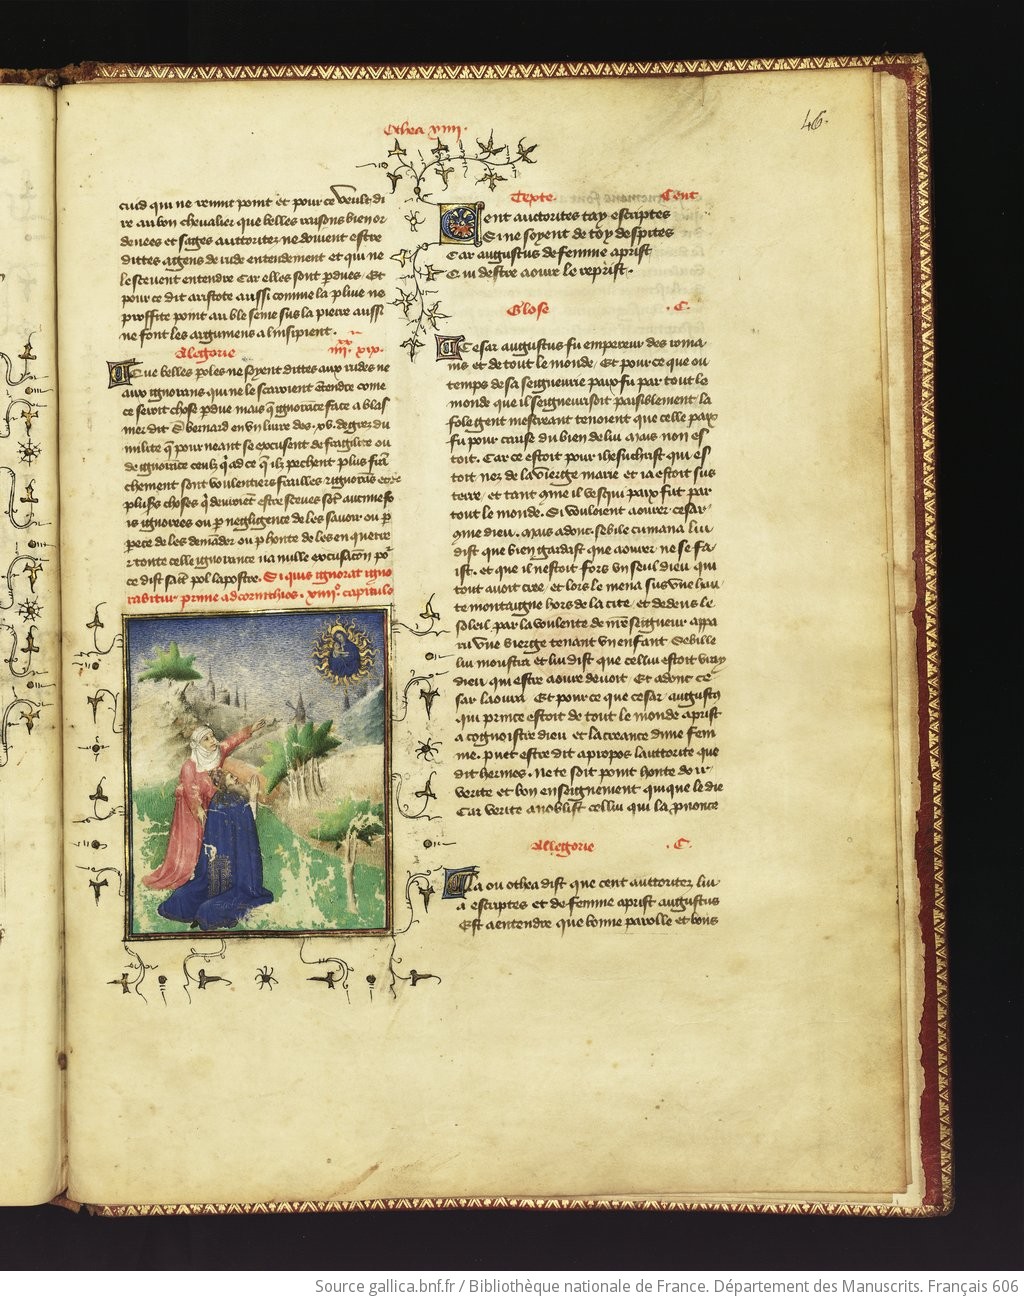 Othea xiiii.
46.
cuid qui ne vennit point et pour ce veult di
re au bon chevalier que belles raisons bien or
denees et sages auttoritez ne doivent estre
dittes a gens de rude entendement et qui ne
le scevent entendre Car elles sont pdues. Et
pour ce dit aristote aussi comme la pluie ne
proffite point au ble seme sus la pierre aussi
ne font les argumens a linsipient.
Alegorie iiii xx. xix.
Que belles poles ne soyent dittes aux rudes ne
aux ignorans qui ne le scaroient entendre come
ce seroit chose pdue mais q ignorance face a blas
mer dit St bernard en un livre des .xv. degrez du
milite q pour neant se excusent de fragilite ou
de ignorance ceulx q ad ce q ilz pechent plus fran
chement sont voulentiers frailles et ignorans et
pluss choses q devroient estre sceues sot aucune fo
is ignorees ou p negligence de les savoir ou p
pece de les demader ou p honte de les en querre
et toute celle ignorance na nulle excusacon po
ce dist saint pol lapostre. Si quis ignorat igno
rabitur prime ad corinthios. xiiii capitulo
Texte. Cent
Cent auttorites tay escriptes
Si ne soyent de toy despites
Car augustus de femme aprist
Qui destre aoure le reprist.
Glose .C.
Cesar augustus fu empereur des roma
ins et de tout le monde. Et pour ce que ou
temps de sa seigneurie paix fu par tout le
monde que il seigneurisoit paisiblement la
fole gent mescreant tenoient que celle paix
fu pour cause du bien de lui mais non es
toit. Car ce estoit pour ihesuchrist qui es
toit nez de la vierge marie et ia estoit sus
terre, et tant come il vesqui paix fut par
tout le monde. Si vouloient aourer cesar
come dieu. Mais adonc sebile cumana lui
dist que bien gardast que aourer ne se fa
ist. et que il nestoit fors un seul dieu qui
tout avoit cree, et lors le mena sus une hau
te montaigne hors de la cite, et dedens le
soleil par la voulente de nre seigneur appa
ru une vierge tenant un enfant Sebille
lui moustra et lui dist que cellui estoit vray
dieu qui estre aoure devoit Et adonc ce
sar laoura Et pour ce que cesar augustus
qui prince estoit de tout le monde aprist
a cognoistre dieu et la creance dune fem
me. puet estre dit a propos lauttorite que
dit hermes. Ne te soit point honte doir
verite et bon enseignement qui que le die
Car verite anoblist cellui qui la pnonce
Allegorie .C.
La ou othea dist que cent auttoritez lui
a escriptes et de femme aprist augustus
Est a entendre que bonne parolle et bons
Source gallica.bnf.fr / Bibliothèque nationale de France. Département des Manuscrits. Français 606